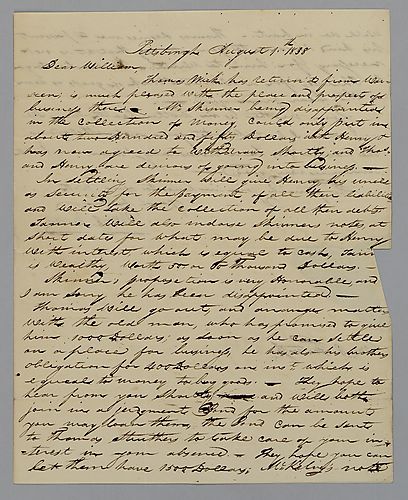 Pittsburgh August 1st 1838
Dear William,
Thomas Wick has returned from War-
ren, is much pleased with the place and prospect of
business there — Mr Skinner being disappointed
in the collection of money could only put in
about two Hundred and fifty Dollars, that Henry
has now agreed to withdraw shortly and Thos.
and Henry are desirous of going into business —
In settling Skinner will give Henry his uncle
as security for the payment of all their liabilities
and will take the collection of all their debts
Tanner will also indorse Skinners notes at
short dates for what may be due to Henry
with interest, which is equal to cash,
is wealthy worth 50 or 60 thousand Dollars —
Skinners proposition is very Honorable and
I am sorry he has been disappointed —
Thomas will go out, and arrange matters
with the old man, who has promised to give
him 1000 Dollars as soon as he can settle
on a place for business, he has also his brothers
obligation for 400 Dollars on int. which is
equal to money to buy goods — they hope to
hear from you shortly and will both
join in a judgment Bond for the amount
you may loan them, the Bond can be sent
to Thomas Struthers to take care of your in-
terest in your absence — they hope you can
let them have 1500 Dollars, McKelvy's note